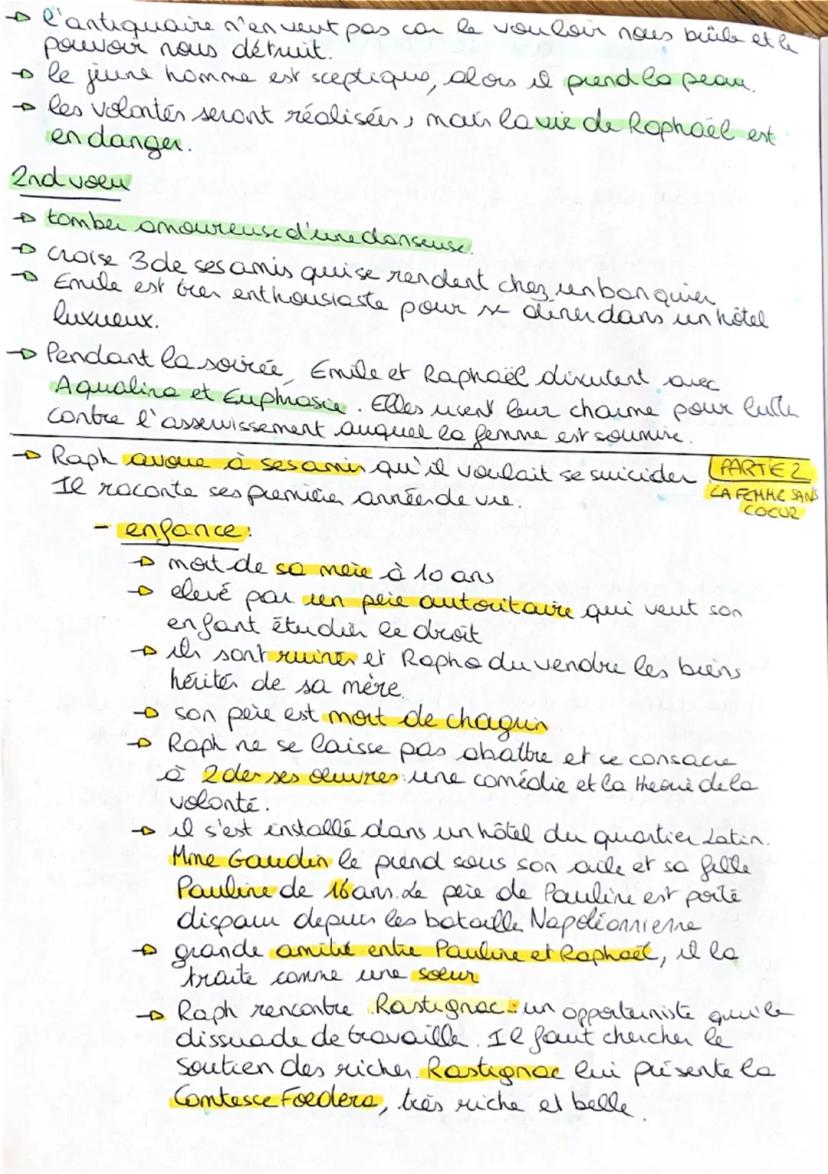 → l'antiquaire n'en veut pas car le vouloir nous brûle et le
pouvoir nous détruit.
→ le jeune homme est sceptique, alors il prend la peau.
→ les volontés seront réalisées, mais la vie de Raphaël est
en danger.
2nd voeu
→ tomber amoureuse d'une danseuse.
→ croise 3 de ses amis qui se rendent chez un banquier
→ Emile est très enthousiaste pour se diner dans un hôtel
luxueux.
→ Pendant la soirée, Emile et Raphaël discutent avec
Aqualina et Euphrasie. Elles usent leur charme pour lutter
contre l'asservissement auquel la femme est soumise.
→ Raph avoue à ses amis qu'il voulait se suicider
PARTIE 2
LA FEMME SANS
COEUR
Il raconte ses première années de vie.
- enfance:
→ mort de sa mère à 10 ans
→ elevé par un père autoritaire qui veut son
enfant étudier le droit
→ ils sont ruinés et Rapha du vendre les biens
hérités de sa mère.
→ son père est mort de chagrin
→ Raph ne se laisse pas abattre et se consacre
à 2 de ses oeuvres: une comédie et la theorie de la
volonté.
→ il s'est installé dans un hôtel du quartier Latin.
Mme Gaudin le prend sous son aile et sa fille
Pauline de 16 ans. Le père de Pauline est porté
disparu depuis les bataille Napoléonnienne
→ grande amitié entre Pauline et Raphaël, il la
traite comme une soeur
→ Raph rencontre Rastignac: un opportuniste qui le
dissuade de travaille. Il faut chercher le
soutien des riches. Rastignac lui présente la
Comtesse Foedora, très riche et belle.